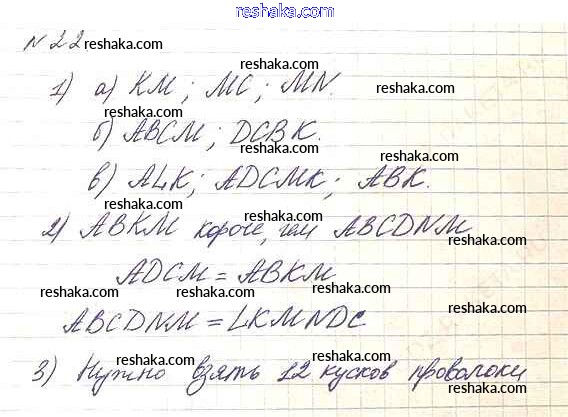 reshaka.com
№ 22 reshaka.com
1) а) KM; MC; MN.
reshaka.com reshaka.com
б) ABCM; DCBK.
reshaka.com reshaka.com
reshaka.com
в) ALK; ADCMK; ABK.
reshaka.com
2) ABKM короче, чем ABCDNM
reshaka.com reshaka.com
ADCM = ABKM
reshaka.com reshaka.com reshaka.com
ABCDNM = LKMNDC
reshaka.com reshaka.com
reshaka.com
3) Нужно взять 12 кусков проволоки
reshaka.com reshaka.com